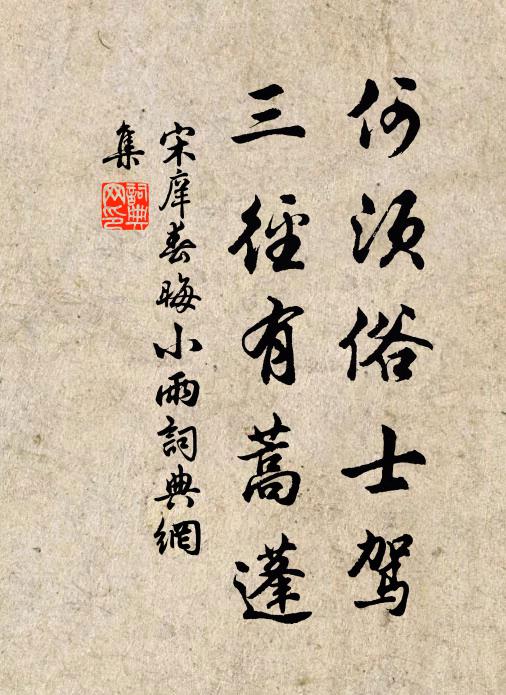 何須俗士駕
三徑有蒿蓬
宋庠春晦小雨詞典網
集
詞典
網印